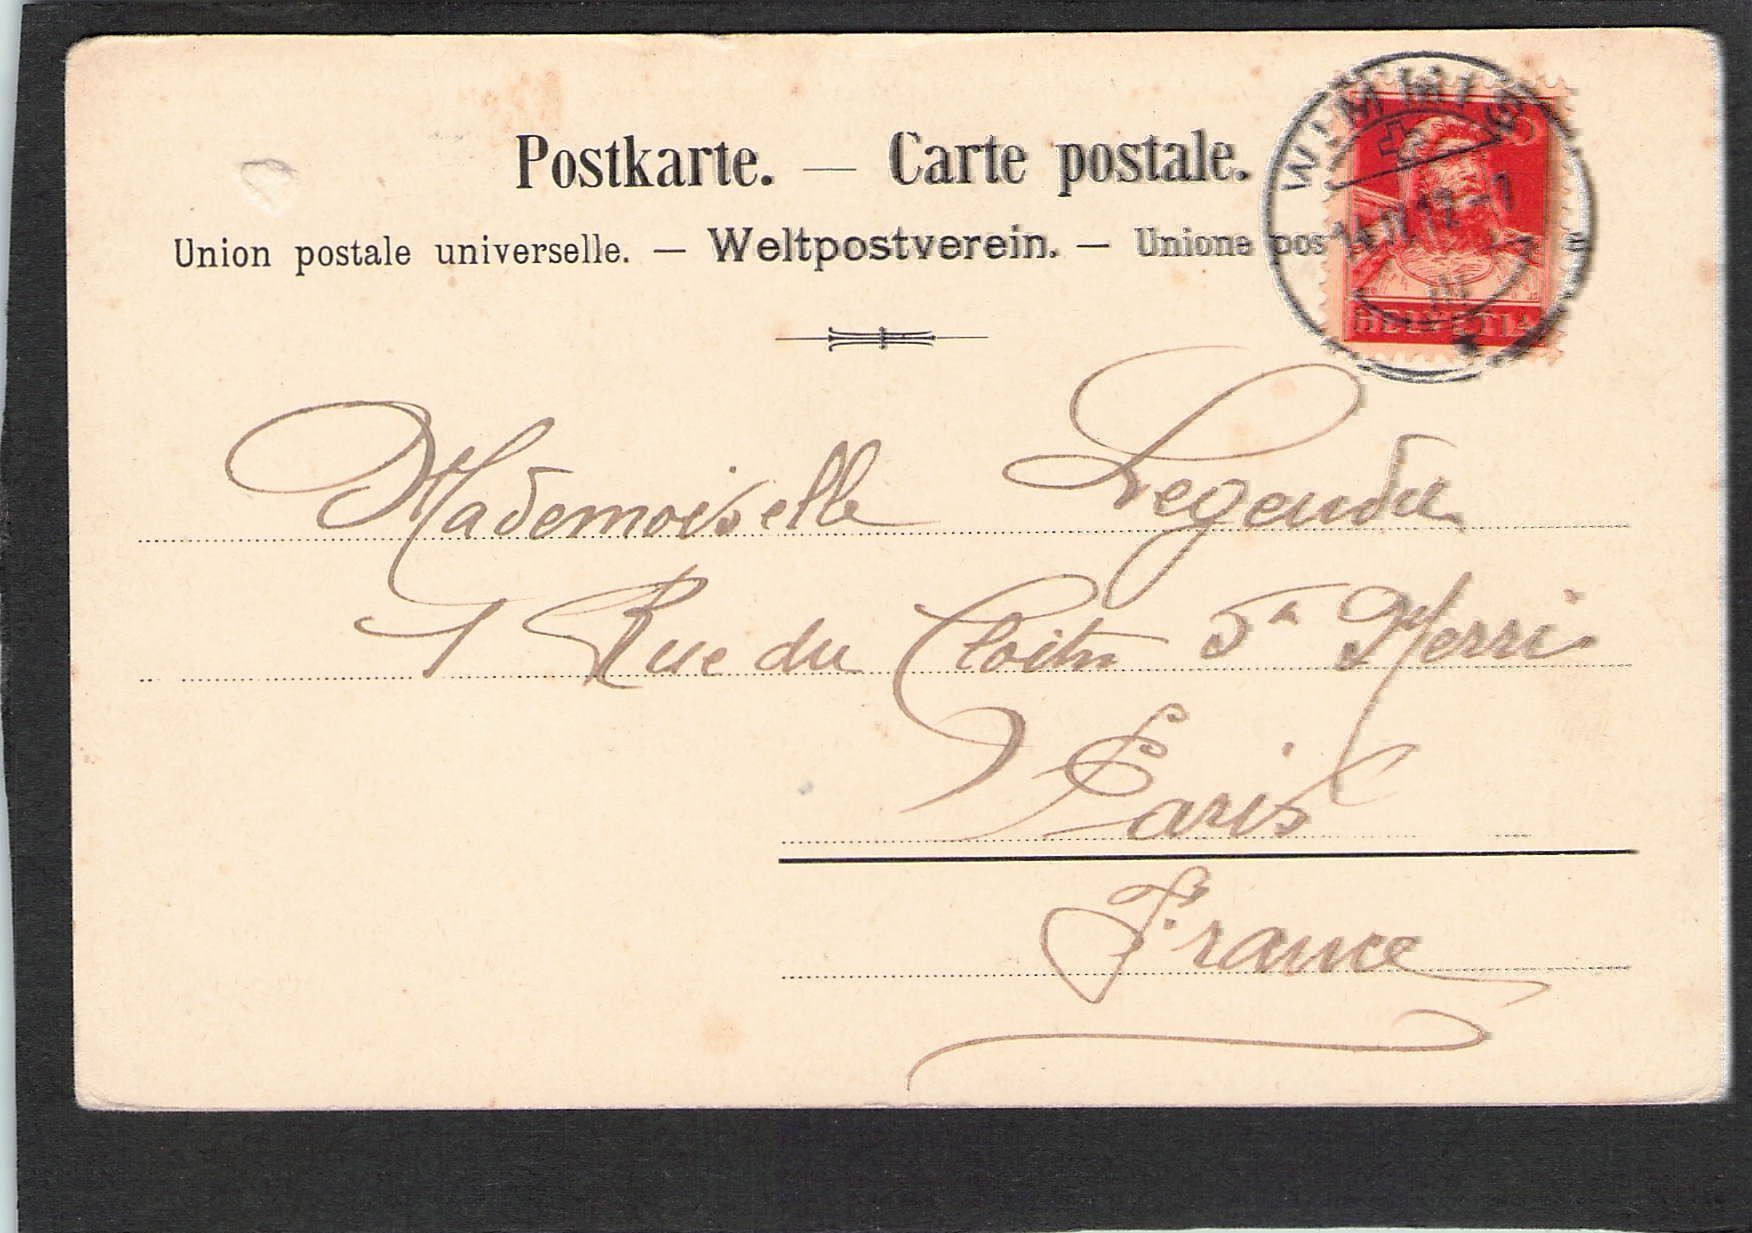 Postkarte. — Carte postale.
Union postale universelle. — Weltpostverein. — Unione pos
WIMMIS
HELVETIA
Mademoiselle Legendre
1 Rue du Cloître St Merri
Paris
France